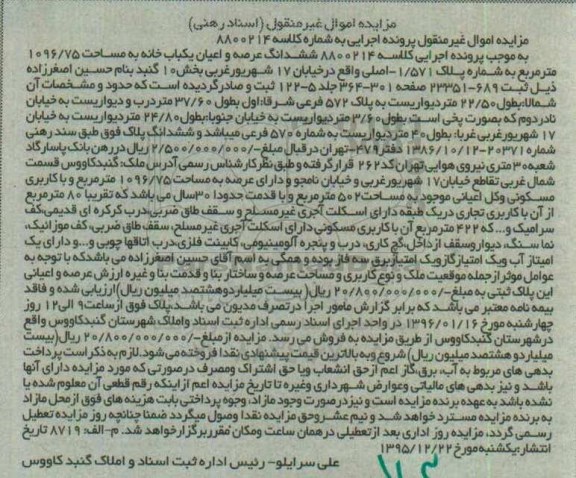 مزایده اموال غیرمنقول (اسناد رهنی)
مزایده اموال غیرمنقول پرونده اجرایی به شماره کلاسه ۸۸۰۰۲۱۴
به موجب پرونده اجرایی کلاسه ۸۸۰۰۲۱۴ ششدانگ عرصه و اعیان یکباب خانه به مساحت ۱۰۹۶/۷۵
مترمربع به شماره پلاک ۱/۵۷۱-اصلی واقع درخیابان ۱۷ شهریورغربی بخش۱۰ گنبد بنام حسین اصغرزاده
ذیل ثبت ۶۸۹-۲۳۳۵۱ صفحه ۳۰۱-۳۶۴ جلد ۵-۱۲۲ ثبت و صادرگردیده است که حدود و مشخصات آن
شمالا:بطول۲۲/۵۰ متردیواریست به پلاک ۵۷۲ فرعی شرقا:اول بطول۳۷/۶۰ متردرب و دیواریست به خیابان
نادردوم که بصورت پخی است بطول۳/۶۰ متردیواریست به خیابان جنوبا:بطول۲۴/۸۰ متردیواریست به خیابان
۱۷ شهریورغربی غربا: بطول۴۰ متردیواریست به شماره ۵۷۰ فرعی میباشد و ششدانگ پلاک فوق طبق سند رهنی
۲۰۳۷۱-۱۳۸۶/۱۰/۱۲ دفتر۴۷۹-تهران درقبال مبلغ-/۲/۵۰۰/۰۰۰/۰۰۰ ریال دررهن بانک پاسارگاد
شعبه۳۰متری نیروی هوایی تهران کد۲۶۲ قرارگرفته و طبق نظرکارشناس رسمی آدرس ملک: گنبدکاووس قسمت
شمال غربی تقاطع خیابان۱۷ شهریورغربی و خیابان نامجو و دارای عرصه به مساحت ۱۰۹۶/۷۵ مترمربع و با کاربری
مسکونی وکل اعیانی موجود به مساحت۵۰۲ مترمربع و با قدمت حدودا ۳۰سال می باشد که تقریبا ۸۰ مترمربع
از آن با کاربری تجاری دریک طبقه دارای اسکلت آجری غیرمسلح و سقف طاق ضربی،درب کرکره ای قدیمی،کف
سرامیک و...که ۴۲۲ مترمربع آن با کاربری مسکونی دارای اسکلت آجری غیرمسلح، سقف طاق ضربی، کف موزائیک،
نما سنگ، دیواروسقف ازداخل،گچ کاری، درب و پنجره آلومینیومی، کابینت فلزی،درب اتاقها چوبی و...و دارای یک
امتیاز آب ویک امتیازگازویک امتیازبرق سه فاز بوده و همگی به اسم آقای حسین اصغرزاده می باشدکه با توجه به
عوامل موثرازجمله موقعیت ملک و نوع کاربری و مساحت عرصه و ساختار بنا و قدمت بنا و غیره ارزش عرصه و اعیانی
این پلاک ثبتی به مبلغ-/۲۰/۸۰۰/۰۰۰/۰۰۰ ریال( بیست میلیاردوهشتصد میلیون ریال)ارزیابی شده و فاقد
بیمه نامه معتبر می باشد که برابر گزارش مامور اجرا درتصرف مدیون می باشد.پلاک فوق ازساعت۹ الی۱۲ روز
چهارشنبه مورخ ۱۳۹۶/۰۱/۱۶ در واحد اجرای اسناد رسمی اداره ثبت اسناد واملاک شهرستان گنبدکاووس واقع
درشهرستان گنبدکاووس از طریق مزایده به فروش می رسد. مزایده ازمبلغ-/۲۰/۸۰۰/۰۰۰/۰۰۰ ریال(بیست
میلیاردو هشتصد میلیون ریال) شروع وبه بالاترین قیمت پیشنهادی نقدا فروخته می شود.لازم به ذکراست پرداخت
بدهی های مربوط به آب، برق،گاز اعم ازحق انشعاب ویا حق اشتراک ومصرف درصورتی که مورد مزایده دارای آنها
باشد و نیز بدهی های مالیاتی وعوارض شهرداری وغیره تا تاریخ مزایده اعم ازاینکه رقم قطعی آن معلوم شده یا
نشده باشد به عهده برنده مزایده است و نیزدرصورت وجود مازاد، وجوه پرداختی بابت هزینه های فوق ازمحل مازاد
به برنده مزایده مسترد خواهد شد و نیم عشروحق مزایده نقدا وصول میگردد ضمنا چنانچه روز مزایده تعطیل
رسمی گردد، مزایده روز اداری بعد ازتعطیلی درهمان ساعت ومکان مقرربرگزارخواهد شد. م-الف: ۸۷۱۹ تاریخ
انتشار:یکشنبه مورخ ۱۳۹۵/۱۲/۲۲
علی سرایلو- رئیس اداره ثبت اسناد و املاک گنبد کاووس